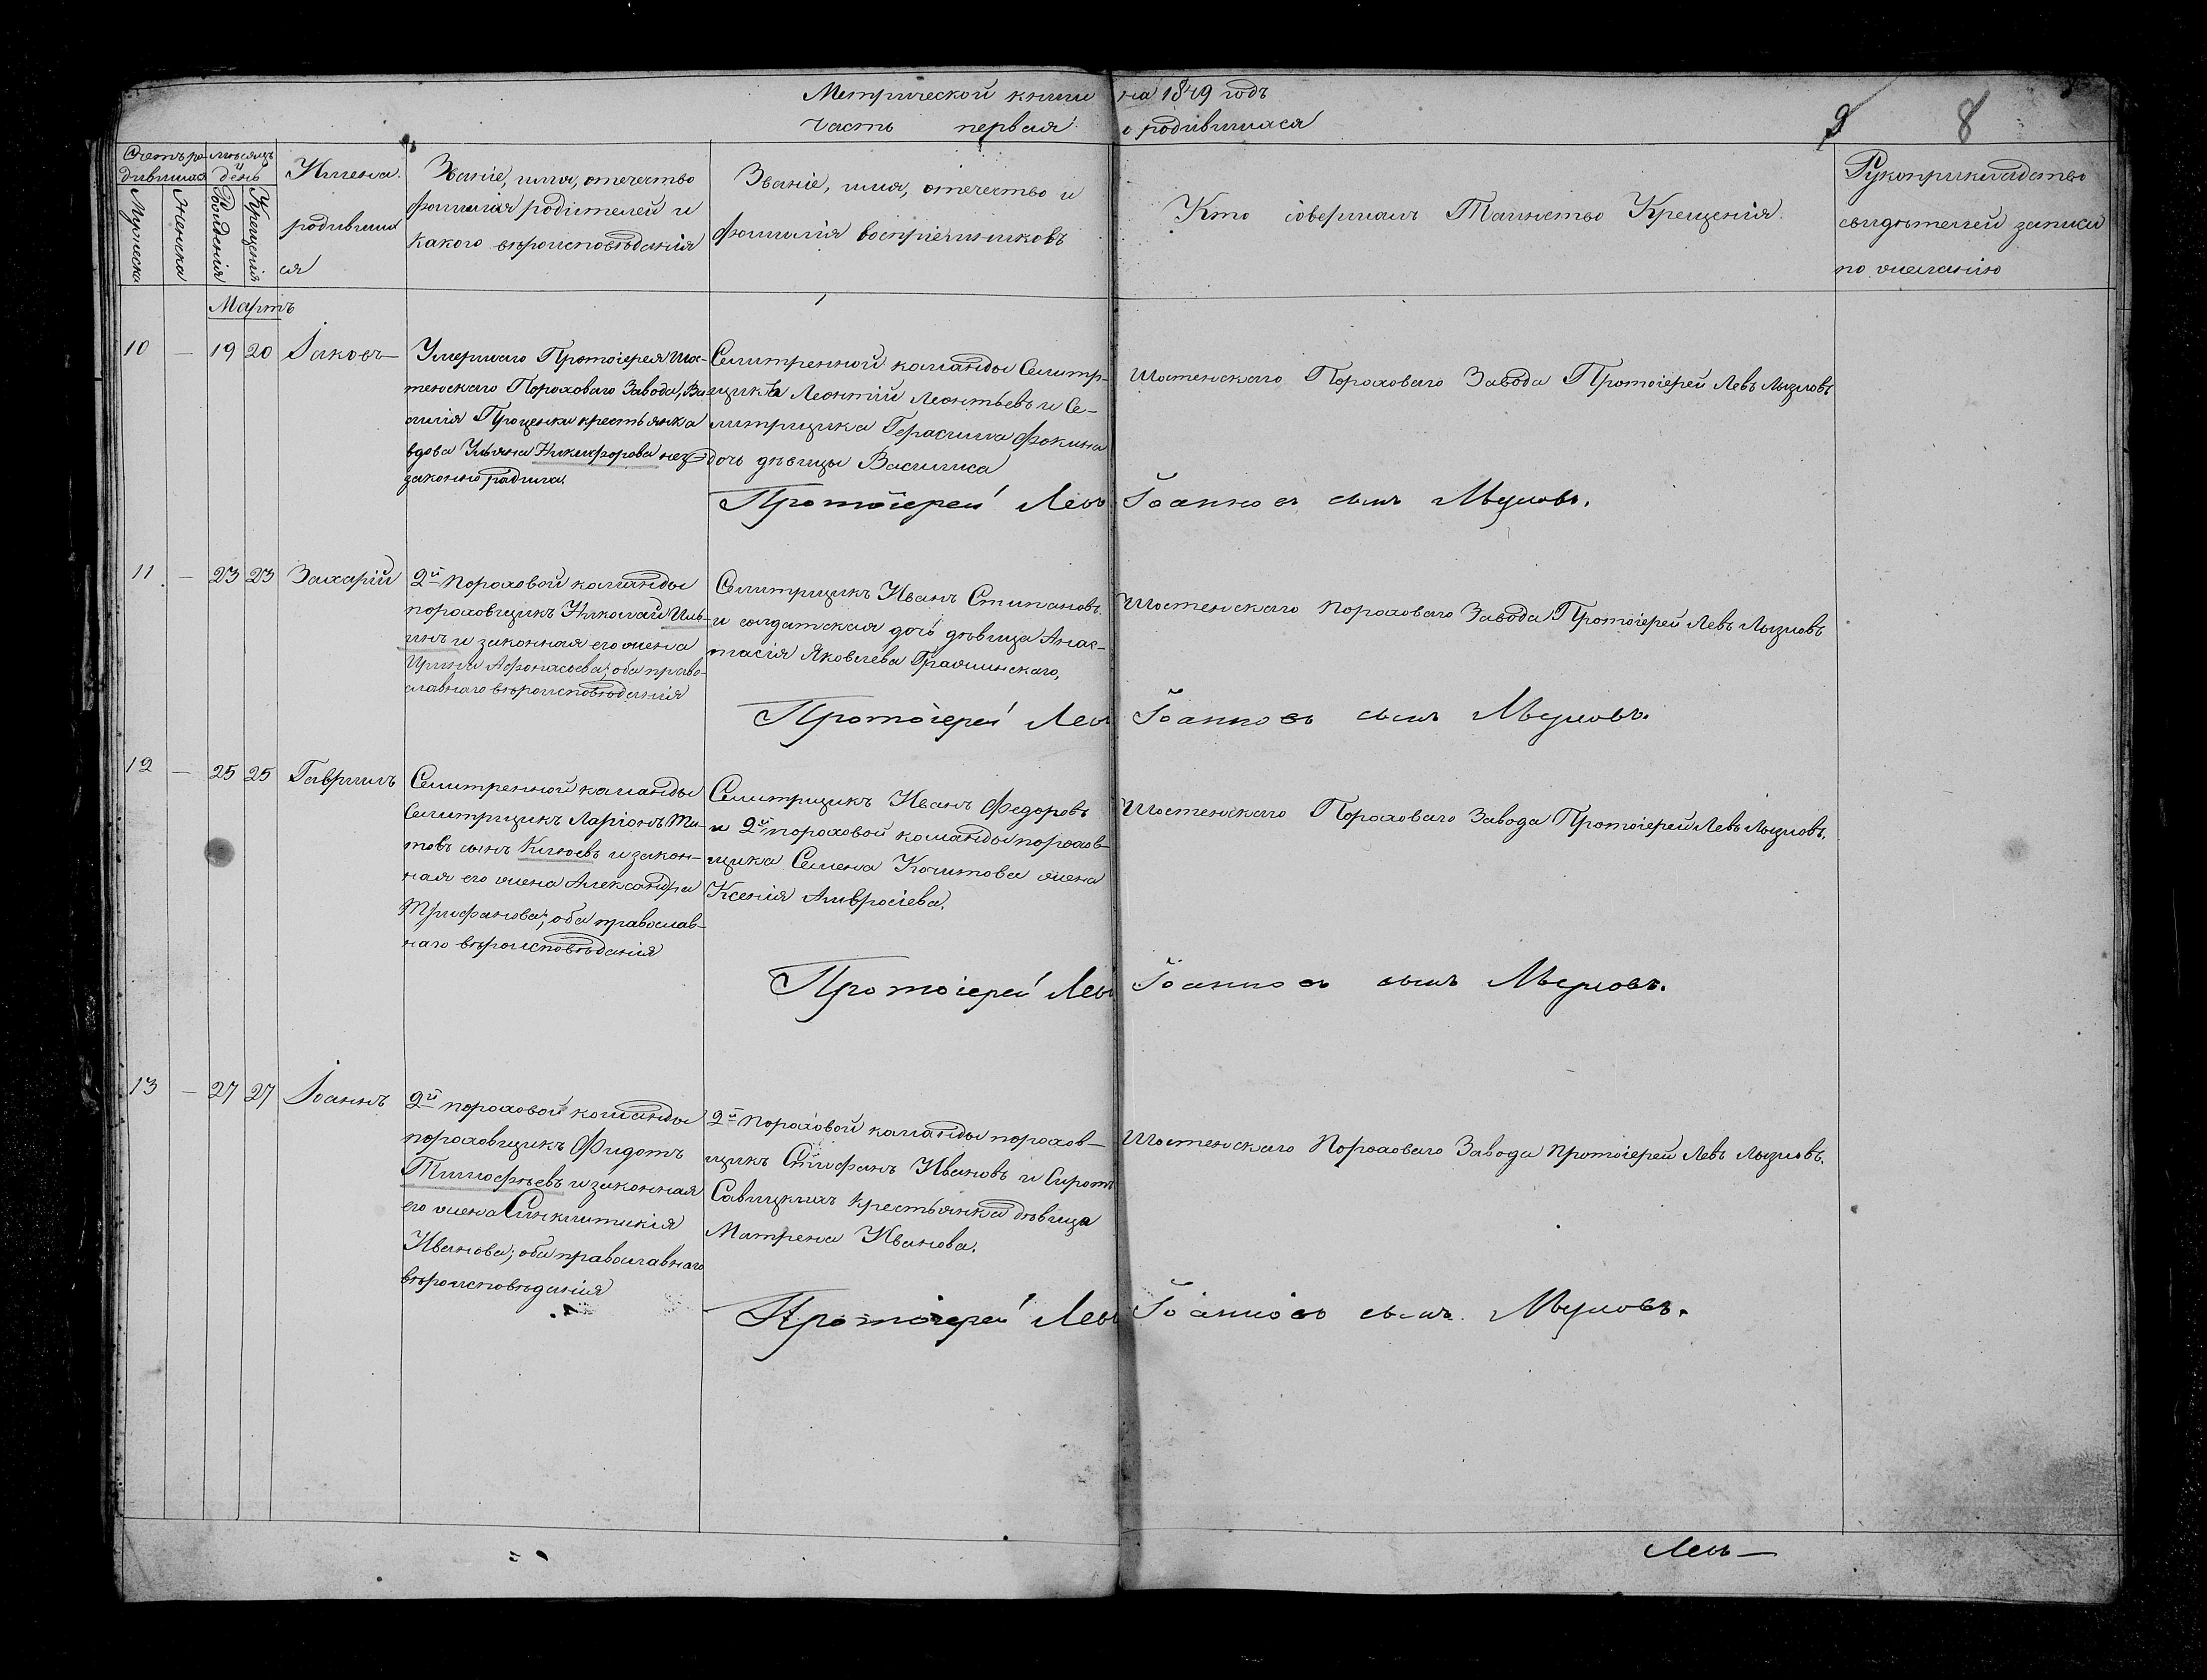 Метрической книги на 1849 годъ
часть первая о родившихся
9 8
Счетъ ро-
дившихся
Мужеска
Женска
мѣсяцъ
и день
Рожденія
Крещенія
Имена
родивших
ся
Званіе, имя, отечество
фамилія родителей и
какого вѣроисповѣданія
Званіе, имя, отечество и
фамилія воспріемниковъ
Кто совершалъ Таинство Крещенія.
Рукоприкладство
свидѣтелей записи
по желанію
Мартъ
10 — 19 20 Іаковъ
Умершаго Протоіерея Шос-
тенскаго Пороховаго Завода, Ва-
силія Проценки крестьянка
вдова Ульяна Никифорова нез-
законно родила
Селитренной команды Селитр-
щикъ Леонтій Леонтьевъ и Се-
литрщика Герасима Фокина
дочь дѣвица Василиса
Шостенскаго Пороховаго Завода Протоіерей Левъ
Протоіерей Левъ Іоанновъ сынъ
11 — 23 23 Захарій
2й пороховой команды
пороховщикъ Николай Иль-
инъ и законная его жена
Ирина Афонасьева; оба право-
славнаго вѣроисповѣданія
Селитрщикъ Иванъ Стипановъ
и солдатская дочь дѣвица Анас-
тасія Яковлева
Шостенскаго пороховаго Завода Протоіерей Левъ
Протоіерей Левъ Іоанновъ сынъ
12 — 25 25 Гавріилъ
Селитренной команды
Селитрщикъ Ларіонъ Ти-
товъ сынъ Клюевъ и закон-
ная его жена Александра
Трифанова; оба православ-
наго вѣроисповѣданія
Селитрщикъ Иванъ Федоровъ
и 2й пороховой команды порохов-
щика Семена жена
Ксенія Амвросіева.
Шостенскаго Пороховаго Завода Протоіерей Левъ
Протоіерей Левъ Іоанновъ сынъ
13 — 27 27 Іоаннъ
2й пороховой команды
пороховщикъ Фидотъ
Тимофѣевъ и законная
его жена Синклитикія
Иванова; оба православнаго
вѣроисповѣданія
2й Пороховой команды порохов-
щикъ Стефанъ Ивановъ и Сиротъ
Савицкихъ крестьянка дѣвица
Матрена Иванова.
Шостенскаго Пороховаго Завода протоіерей Левъ
Протоіерей Левъ Іоанновъ сынъ